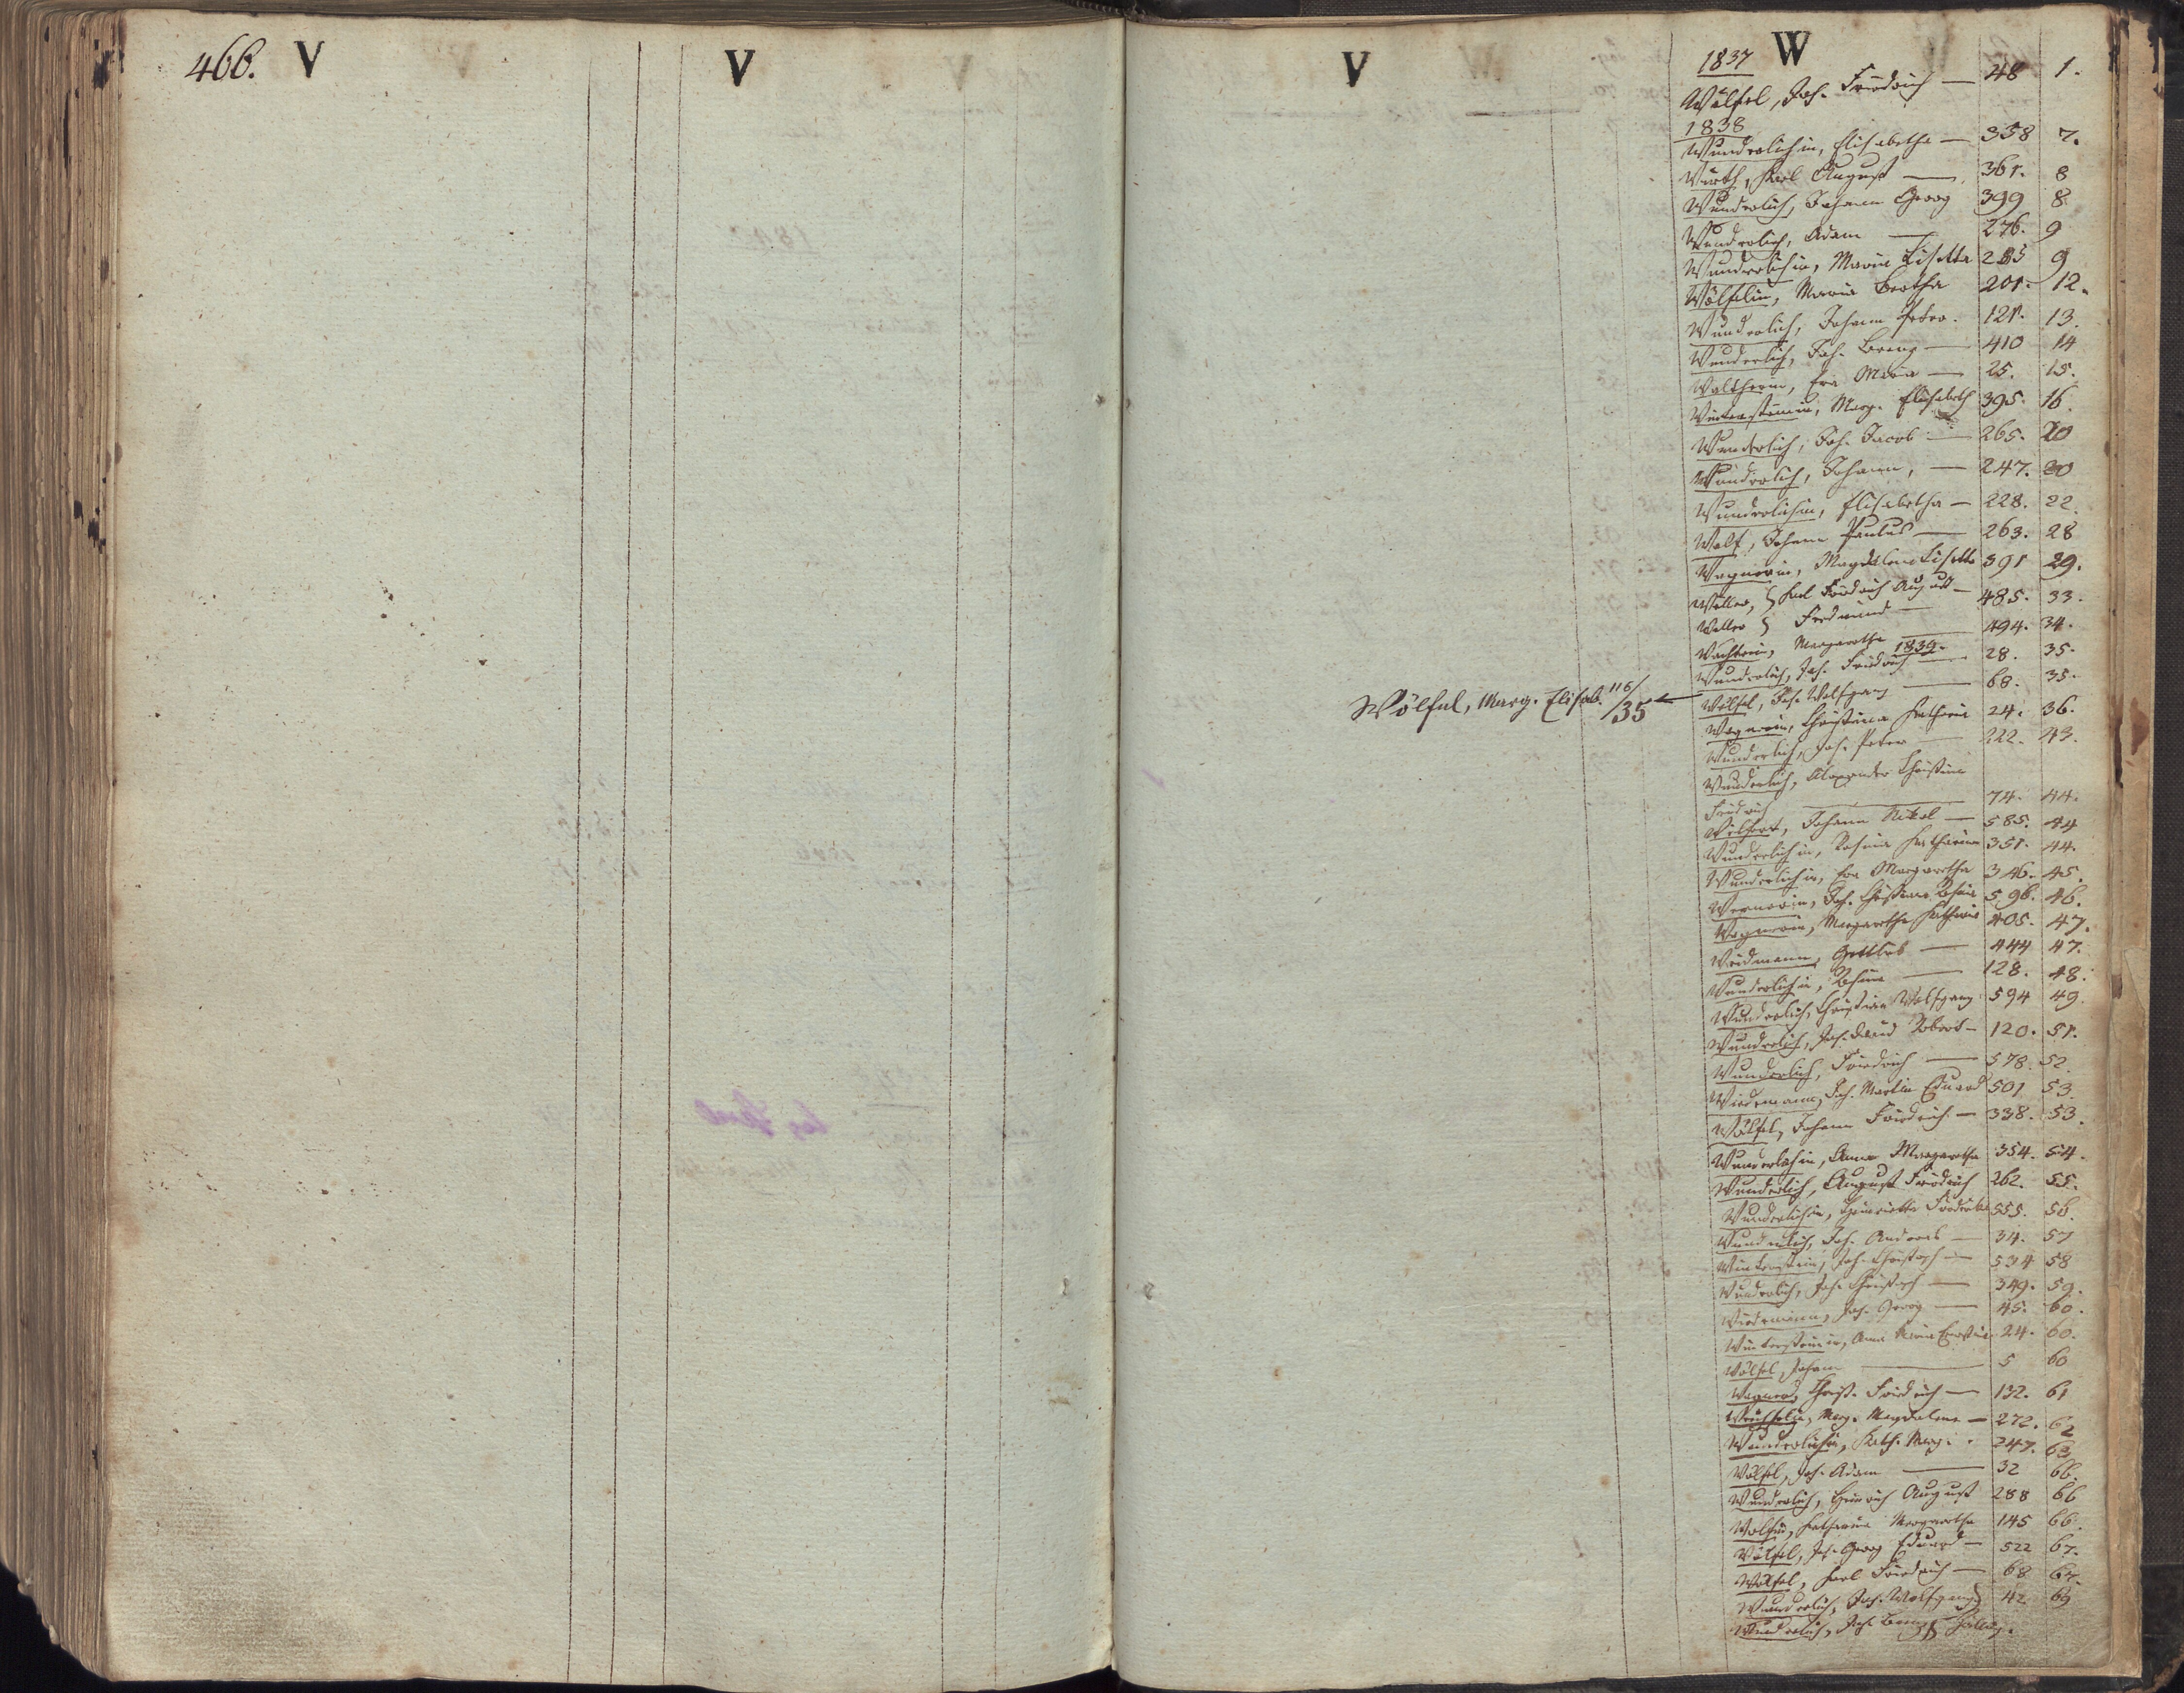 466. V
V
V
Wölfel, Marg. Elisab. 116/35
W
1837
Wölfel, Joh. Friedrich — 48 1.
1838
Wunderlichin, Elisabetha — 358 7.
Wirth, Karl August — 361. 8
Wunderlich, Johann Georg 399 8.
Wunderlich, Adam — 276. 9
Wunderlichin, Maria Lisetta 285 9
Wölfelin, Maria Bertha 201. 12.
Wunderlich, Johann Peter. 121. 13.
Wunderlich, Joh. Georg — 410 14
Waltherin, Eva Maria — 25. 15.
Wintersteinin, Marg. Elisabeth 395. 16.
Wunderlich, Joh. Jacob — 265. 20
Wunderlich, Johann, — 247. 20
Wunderlichin, Elisabetha — 228. 22.
Wolf, Johann Paulus — 263. 28
Wagnerin, Magdalena Lisetta 391 29.
Weller, } Karl Friedrich August — 485. 33.
Weller } Ferdinand —
Wachterin, Margaretha — 494. 34.
1839.
Wunderlich, Joh. Friedrich — 28. 35.
Wölfel, Joh. Wolfgang — 68. 35.
Wagnerin, Christiana Katharina 24. 36.
Wunderlich, Joh. Peter — 222. 43.
Wunderlich, Alexander Christian
Friedrich — 74. 44.
Johann Nikol — 585. 44
Wunderlichin, Rosina Katharina 351. 44.
Wunderlichin, Eva Margaretha 346. 45.
Wernerin, Joh. Christiana 596. 46.
Wagnerin, Margaretha Katharina 405. 47.
Weidmann, Gottlieb — 444 47.
Wunderlichin, — 128. 48.
Wunderlich, Christian Wolfgang 594 49.
Wunderlich, Joh. David Robert — 120. 51.
Wunderlich, Friedrich — 578. 52.
Wiedemann, Joh. Martin Eduard 501 53.
Wölfel, Johann Friedrich — 338. 53.
Wunderlichin, Anna Margaretha 354. 54.
Wunderlich, August Friedrich 262. 55.
Wunderlichin, Henrietta Friederika 555. 56.
Wunderlich, Joh. Andreas — 34. 57
Winterstein, Joh. Christoph — 534 58
Wunderlich, Joh. Christoph — 349. 59.
Wiedemann, Joh. Georg — 45. 60.
Wintersteinin, Anna Maria 24. 60.
Wölfel, Johann — 5 60
Wagner, Christ. Friedrich — 132. 61
Marg. Magdalena — 272. 62
Wunderlichin, Kath. Marg. 247. 63
Wölfel, Joh. Adam — 32 66.
Wunderlich, Heinrich August 288 66
Katharina Margaretha 145 66.
Wölfel, Joh. Georg Eduard — 522 67.
Wölfel, Karl Friedrich — 68 67.
Wunderlich, Joh. Wolfgang } 42 69
Wunderlich, Joh. Georg }